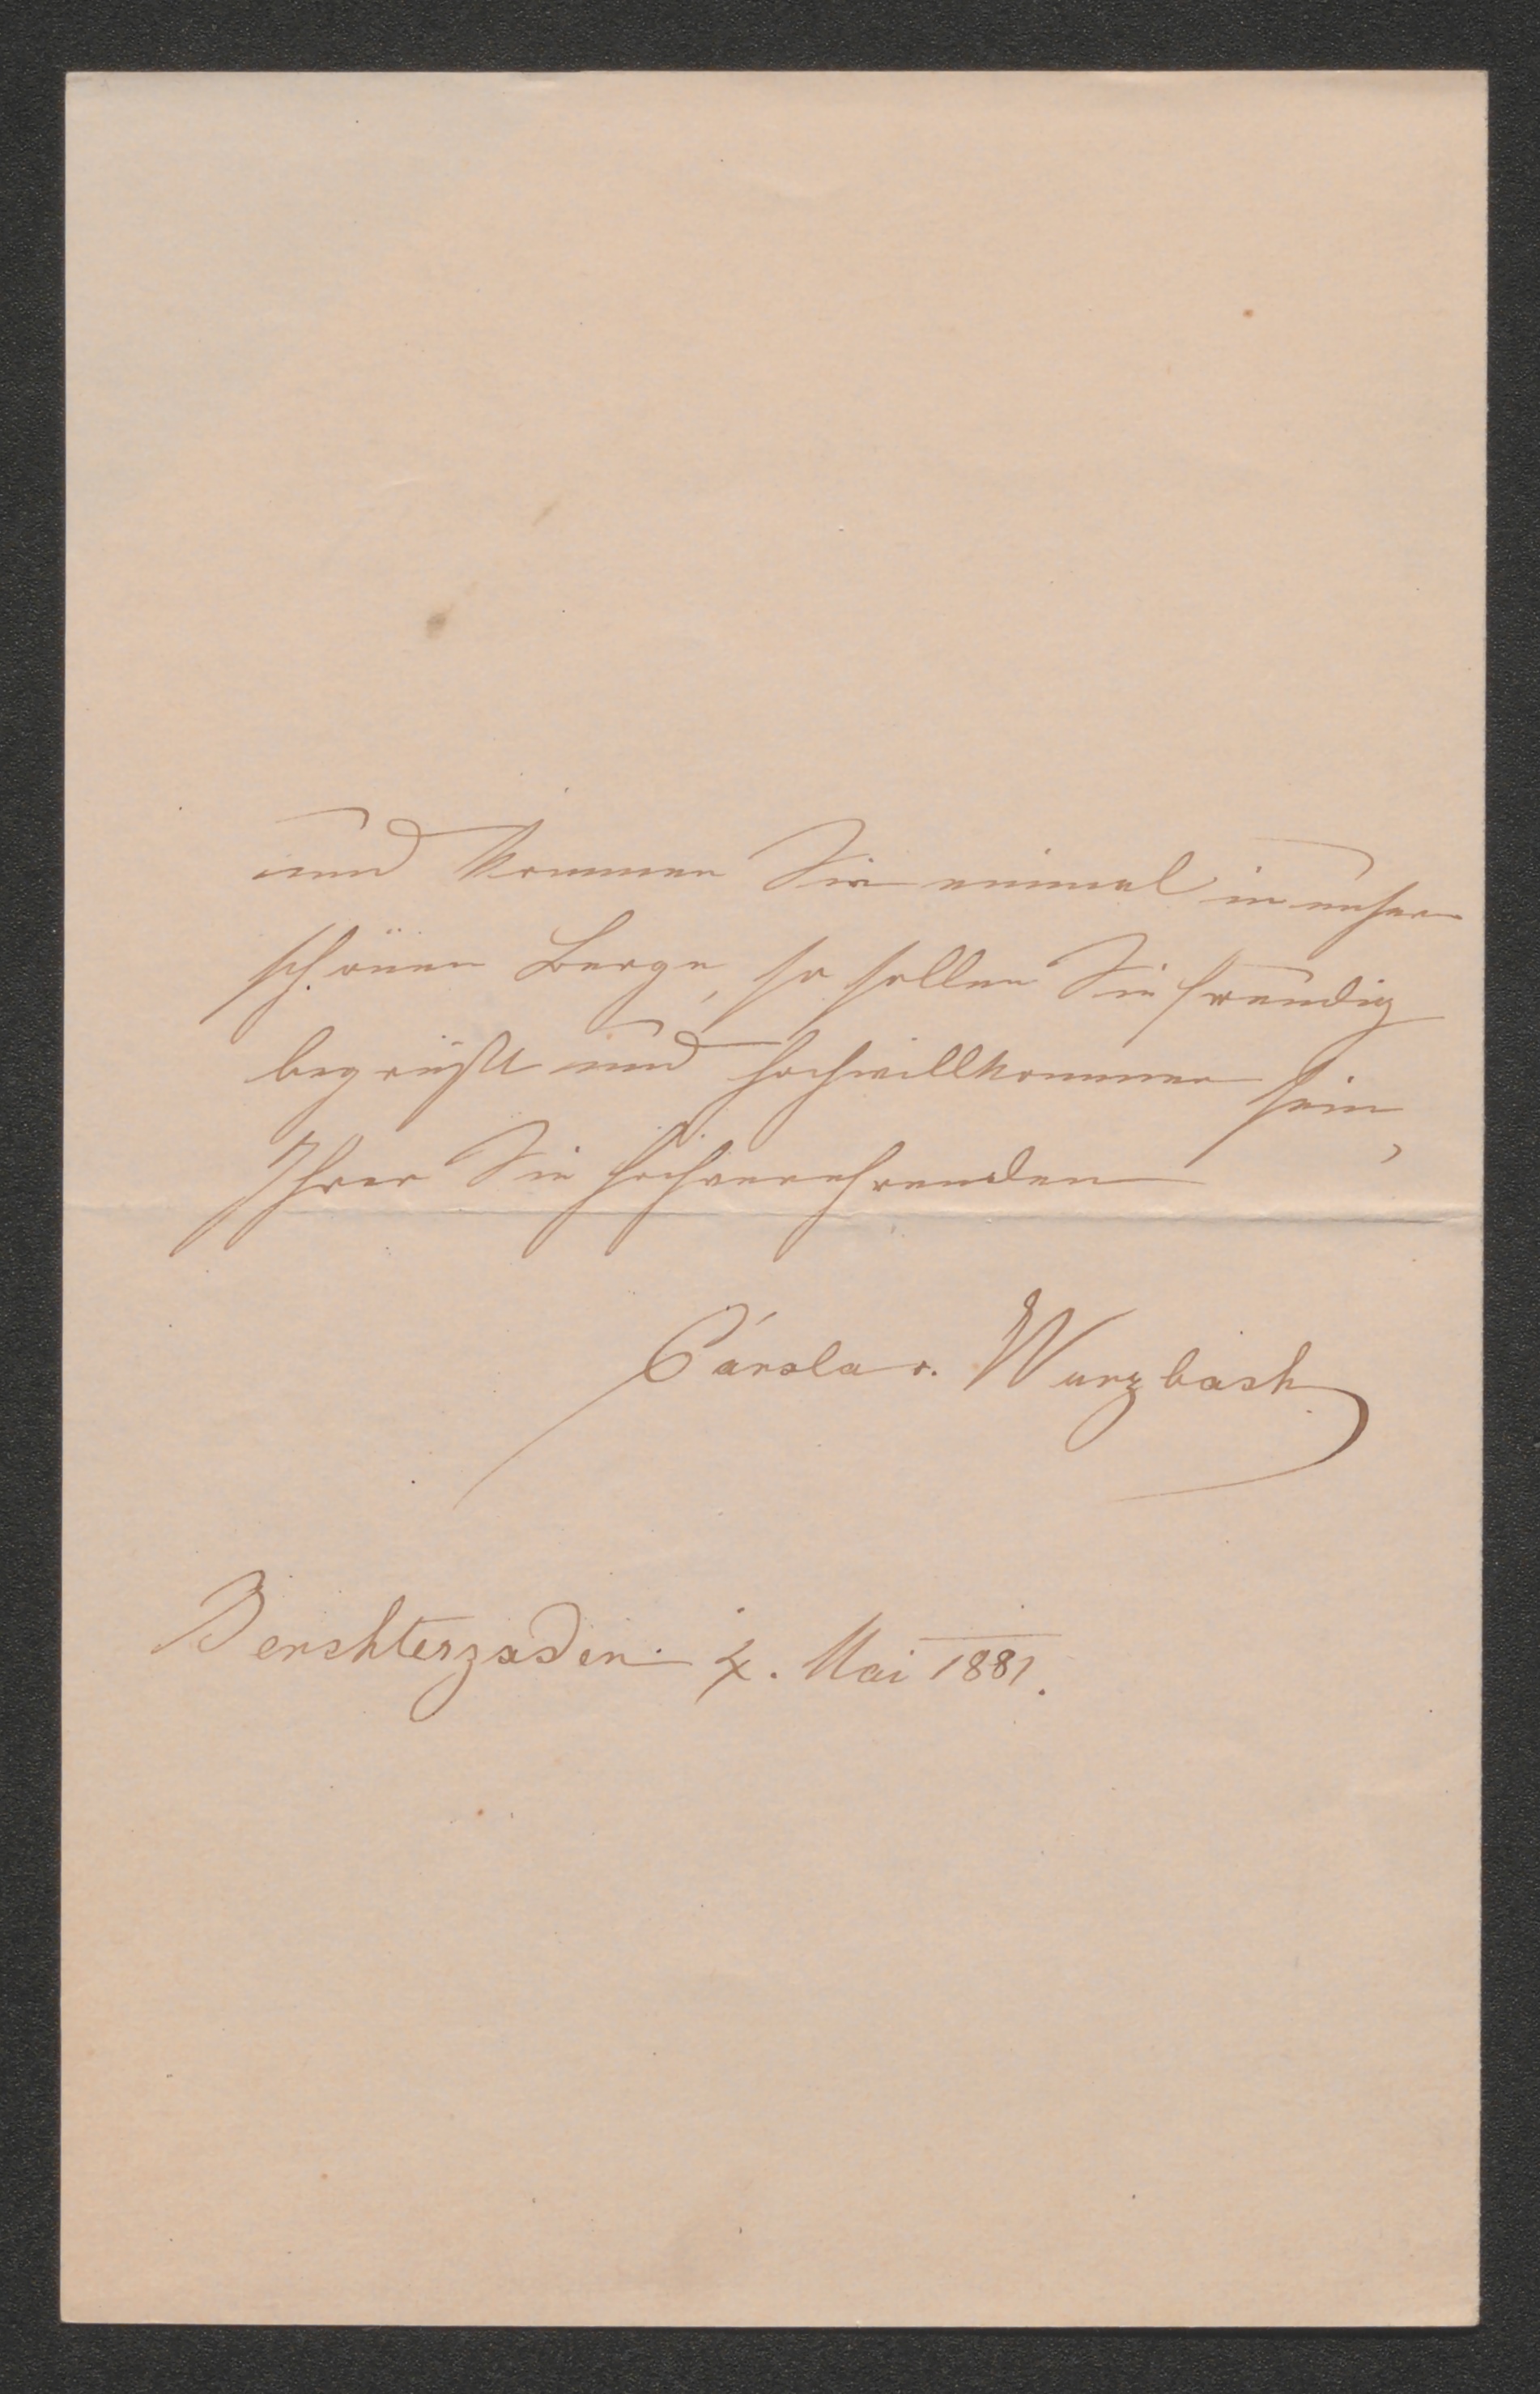 und kommen Sie einmal in unsere
schönen Berge, so sollen Sie freudig
begrüßt und hochwillkommen sein,
Ihrer Sie hochverehrenden
v. Wurzbach
Berchtesgaden. 4. Mai 1881.